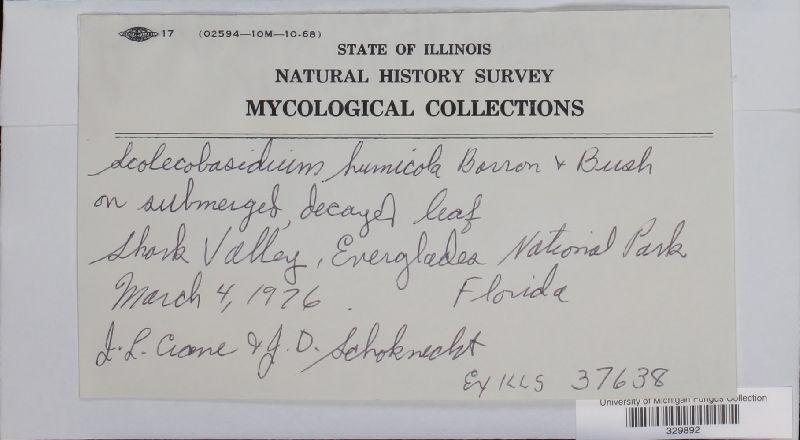 17 (02594—10M—10-68)
STATE OF ILLINOIS
NATURAL HISTORY SURVEY
MYCOLOGICAL COLLECTIONS
Scolecobasidium humicola Barron & Bush
on submerged, decayed leaf
Shark Valley, Everglades National Park
March 4, 1976. Florida
J. L. Crane & J. D. Schoknecht
Ex ILLS 37638
University of Michigan Fungus Collection
329892